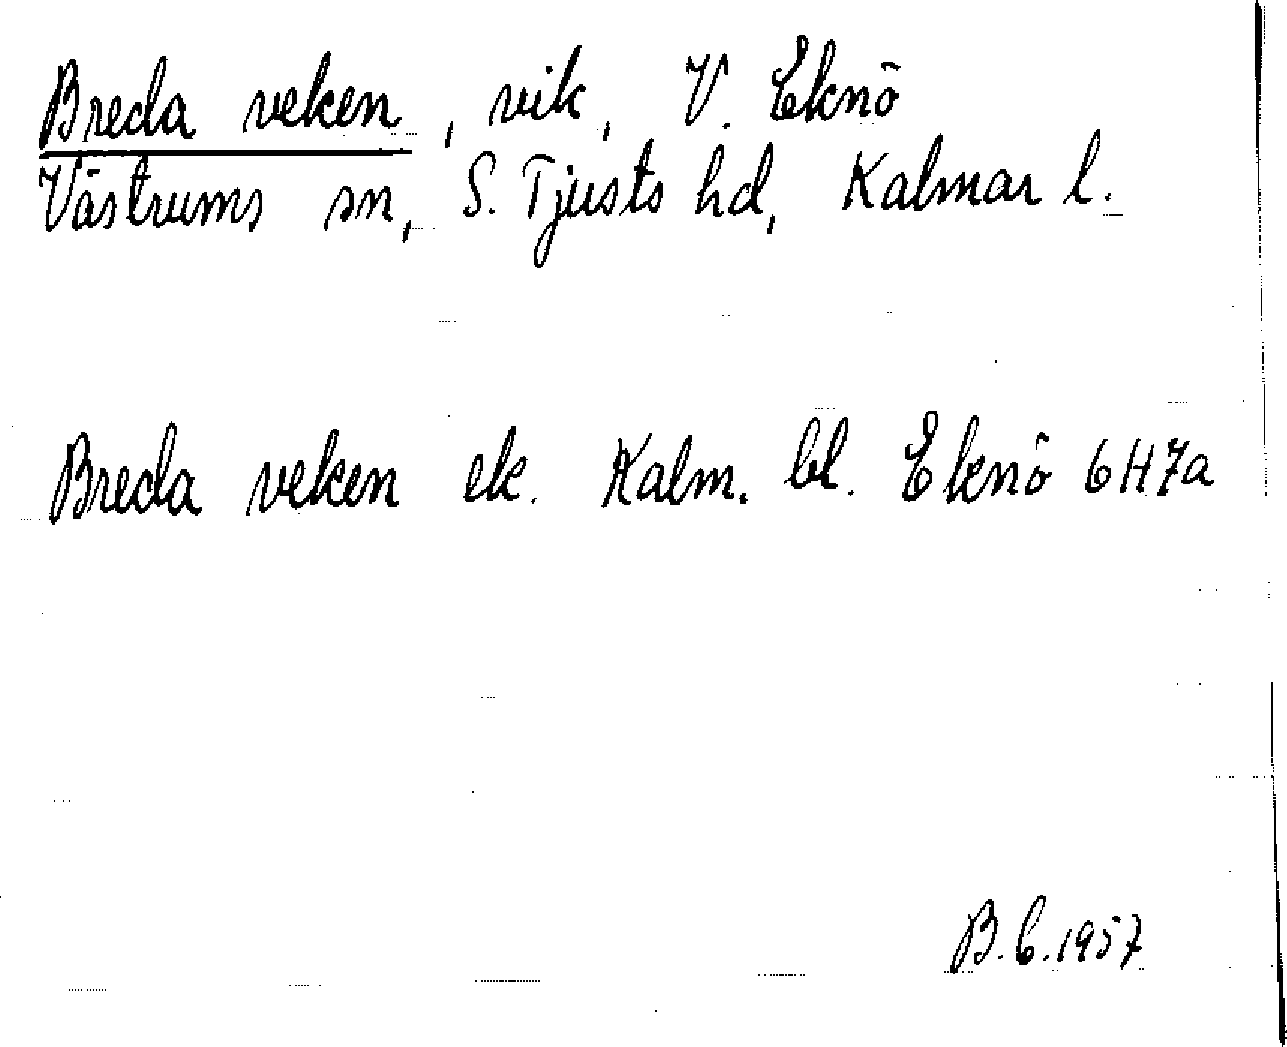 Breda veken, vik, V. Eknö
Västrums sn, S. Tjusts hd, Kalmar l.
Breda veken ek. Kalm. bl. Eknö 6H7a
B.b.1957